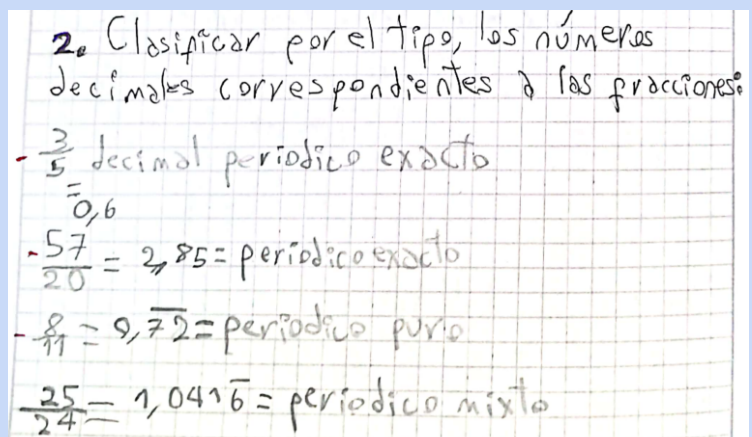 2. Clasificar por el tipo, los números
decimales correspondientes a las fracciones:
- 3/5 decimal periodico exacto
= 0,6
- 57/20 = 2,85 = periodico exacto
- 8/11 = 0,7̅2̅ = periodico puro
25/24 = 1,0416̅ = periodico mixto